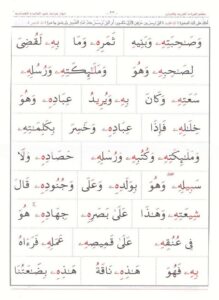 وَصَـٰحِبَتِهِۦ وَبَنِيهِ ثَمَرِهِۦ وَمَا بِهِۦ لَقُضِىَ
لِصَـٰحِبِهِۦ وَهُوَ وَمَلَـٰٓئِكَتِهِۦ وَرُسُلِهِۦ
سَعَتِهِۦ وَكَانَ بِهِۦ وَيُرِيدُ عِبَادِهِۦ وَهُوَ
خِلَـٰلِهِۦ فَإِذَا عِبَادِهِۦ وَخَسِرَ بِكَلِمَـٰتِهِۦ
وَمَلَـٰٓئِكَتِهِۦ وَكُتُبِهِۦ وَرُسُلِهِۦ حَصَادِهِۦ وَلَا
سَبِيلِهِۦ وَهُوَ بِوَلَدِهِۦ وَعَلَى وَجُنُودِهِۦ قَالَ
شِيعَتِهِۦ وَهَـٰذَا عَلَىٰ بَصَرِهِۦ جِهَادِهِۦ هُوَ
فِى عُنُقِهِۦ عَلَىٰ قَمِيصِهِۦ عَمَلِهِۦ فَرَءَاهُ
بِهِۦ فَهُوَ هَـٰذِهِۦ نَاقَةُ هَـٰذِهِۦ بِضَـٰعَتُنَا